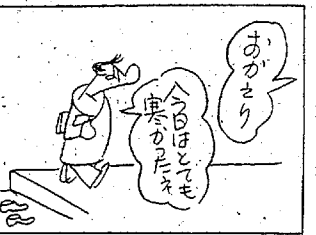 おかえり
今日はとても
寒かったネ